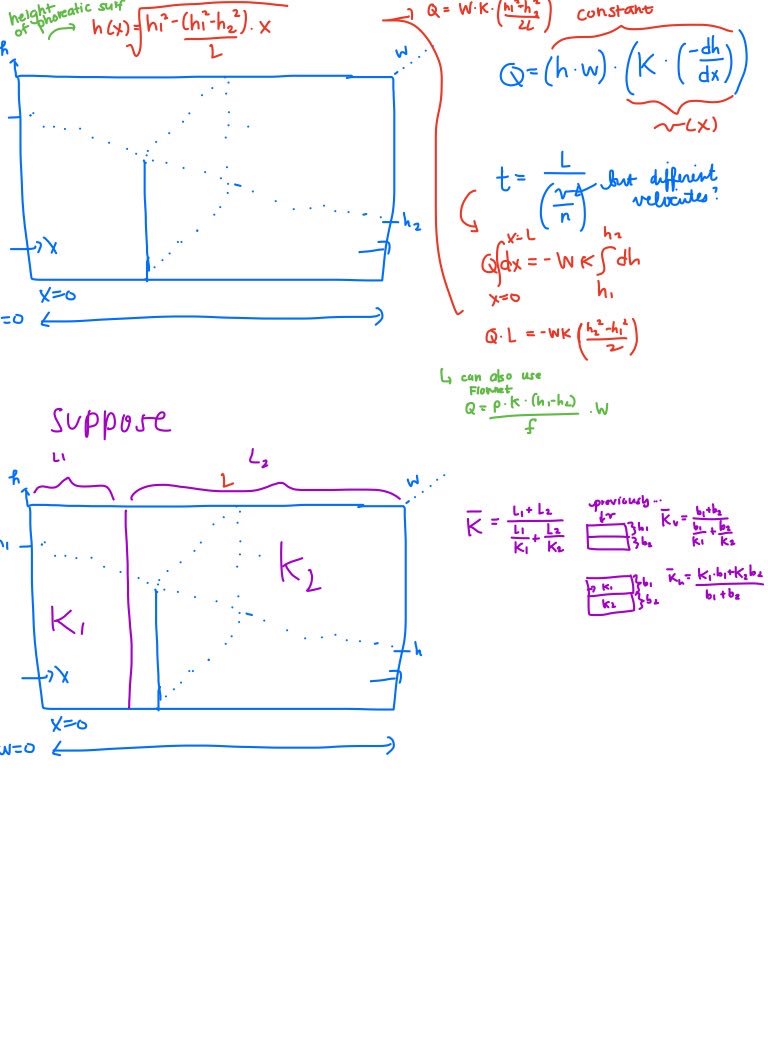 height
of phoreatic surf
h(x) = √(h₁² - (h₁² - h₂²)/L · x)
Q = W·K·((h₁² - h₂²)/2L)
constant
Q = (h·w)·(K·(-dh/dx))
v(x)
h
w
h₂
x
x=0
=0
t = L/(v/n)
but different
velocites?
Q ∫ dx = -WK ∫ dh
x=L
x=0
h₂
h₁
Q·L = -WK((h₂² - h₁²)/2)
↳ can also use
Flownet
Q = p·K·(h₁-h₂)/f · W
suppose
L1
L₂
L
h
w
h1
K₁
K₂
h
x
x=0
w=0
K̄ = (L₁+L₂)/(L₁/K₁ + L₂/K₂)
previously...
v
}b₁
}b₂
K̄ᵥ = (b₁+b₂)/(b₁/K₁ + b₂/K₂)
K₁ }b₁
K₂ }b₂
K̄ₕ = (K₁·b₁+K₂b₂)/(b₁+b₂)